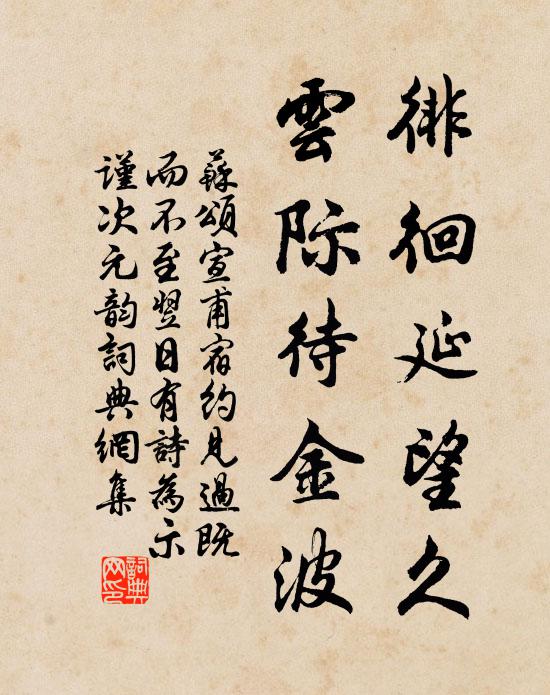 徘徊延望久
雲際待金波
蘇頌宣甫宿約見過既
而不至翌日有詩為示
謹次元韵詞典網集
詞典网印